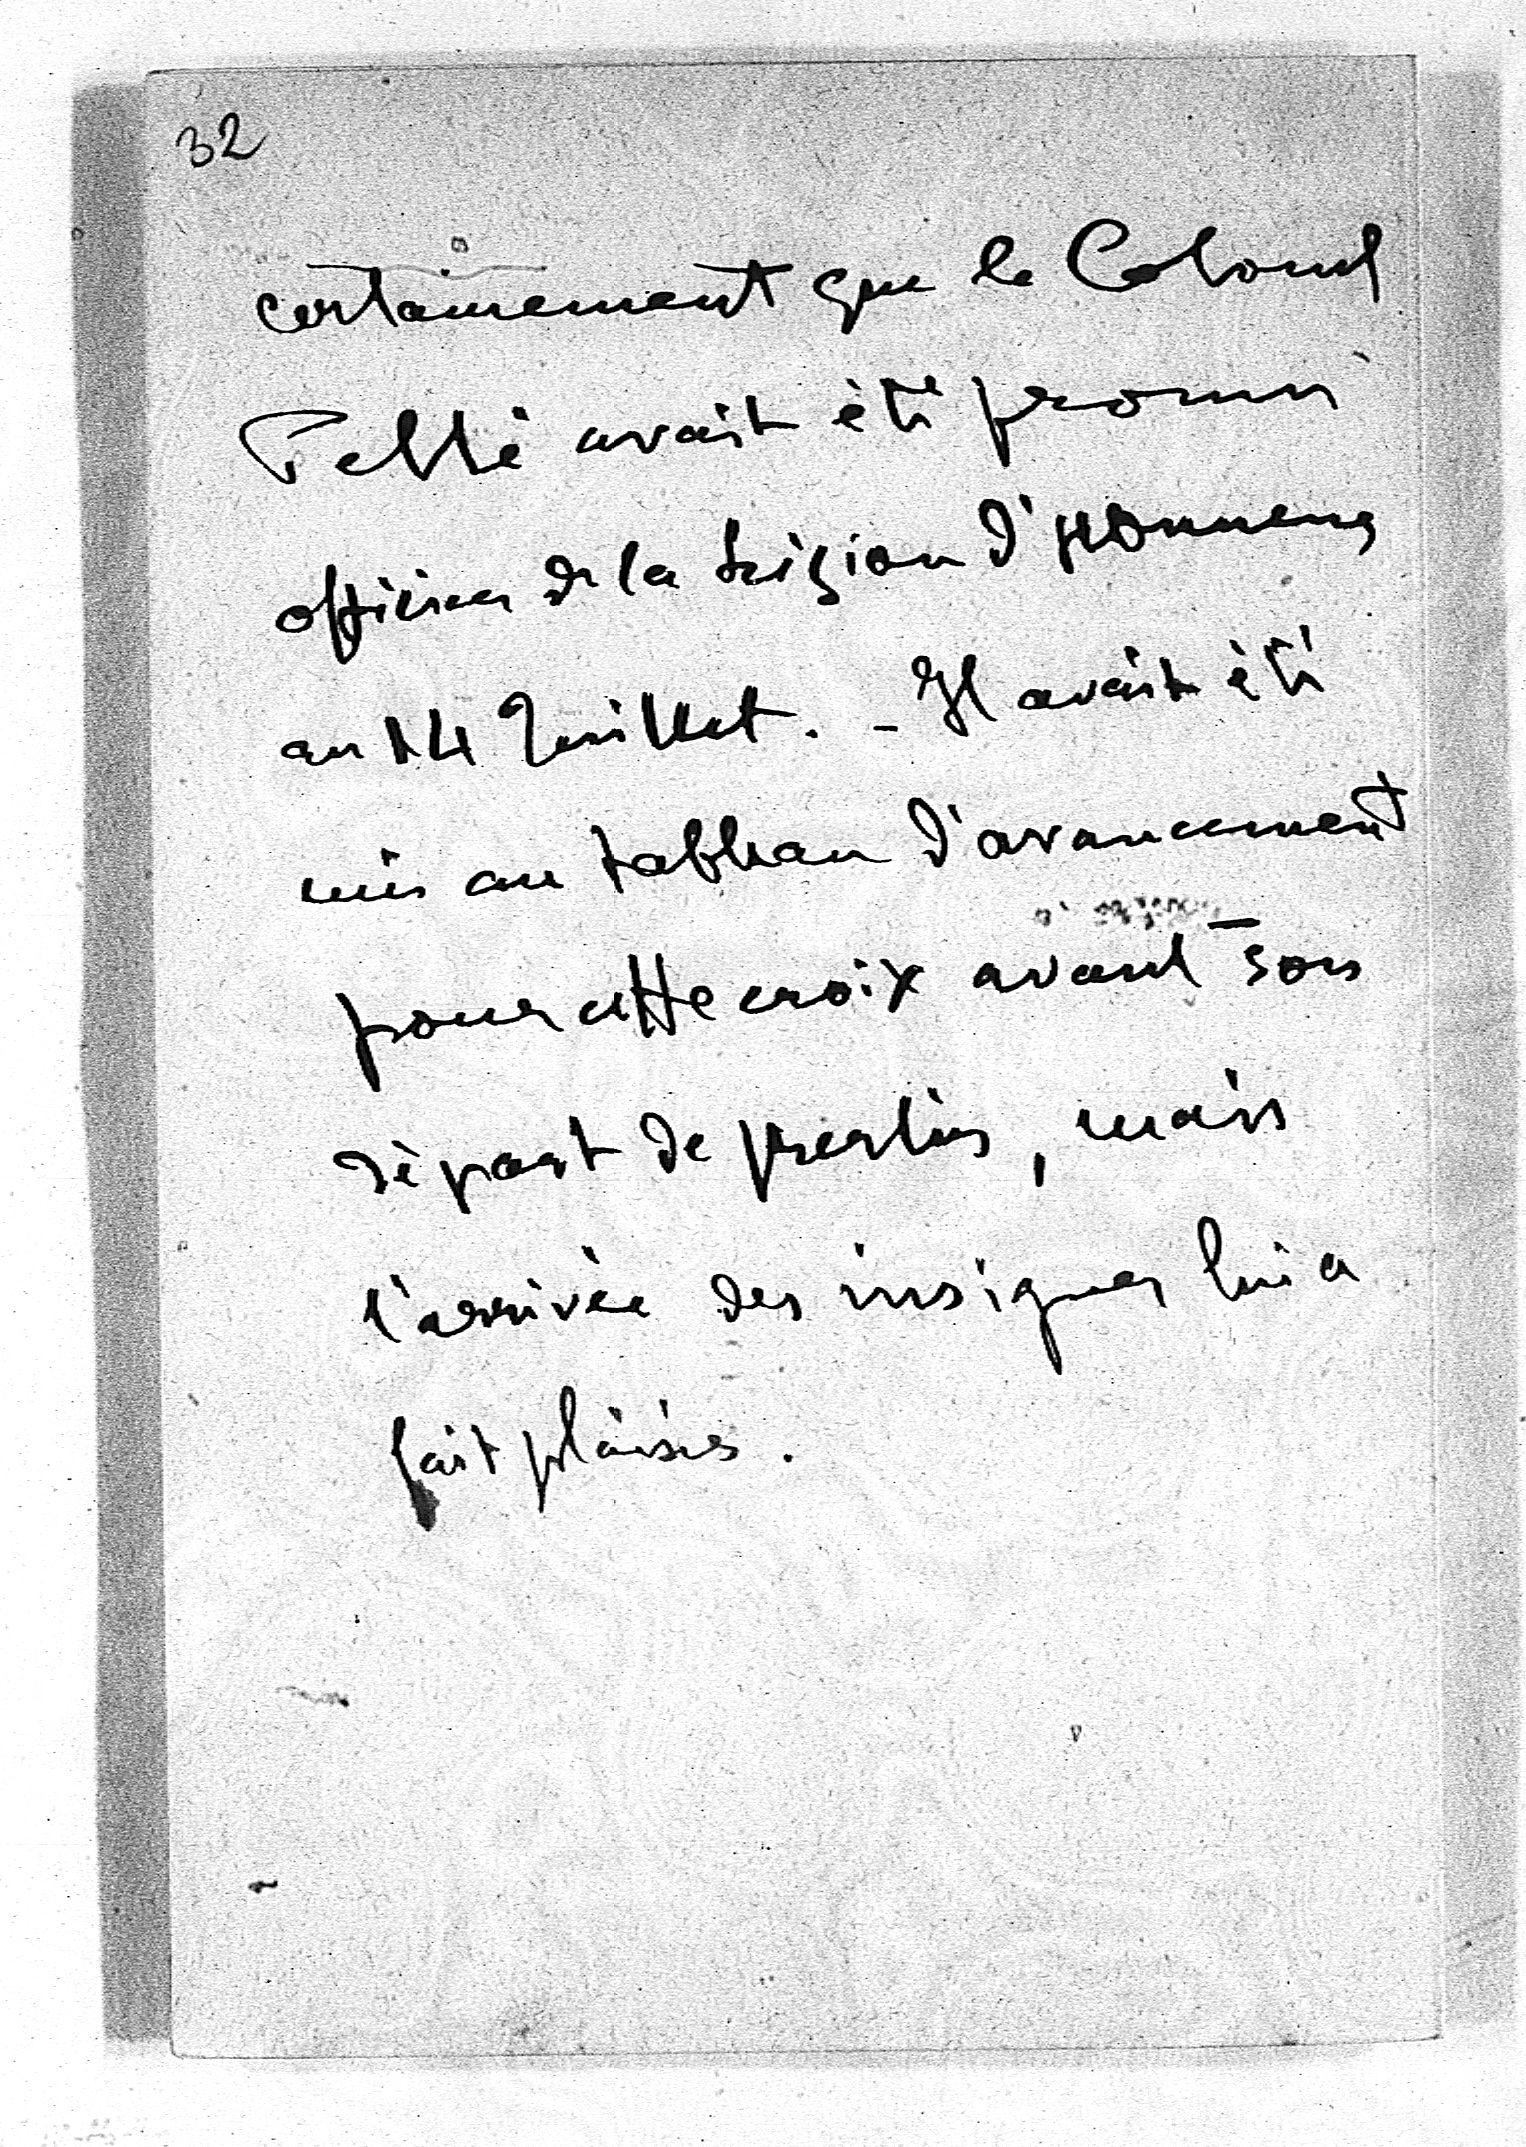 32
certainement que le Colonel
Pellé avait été promu
officier de la Légion d'Honneur
au 14 Juillet. - Il avait été
mis au tableau d'avancement
pour cette croix avant son
départ de Berlin, mais
l'arrivée des insignes lui a
fait plaisir.